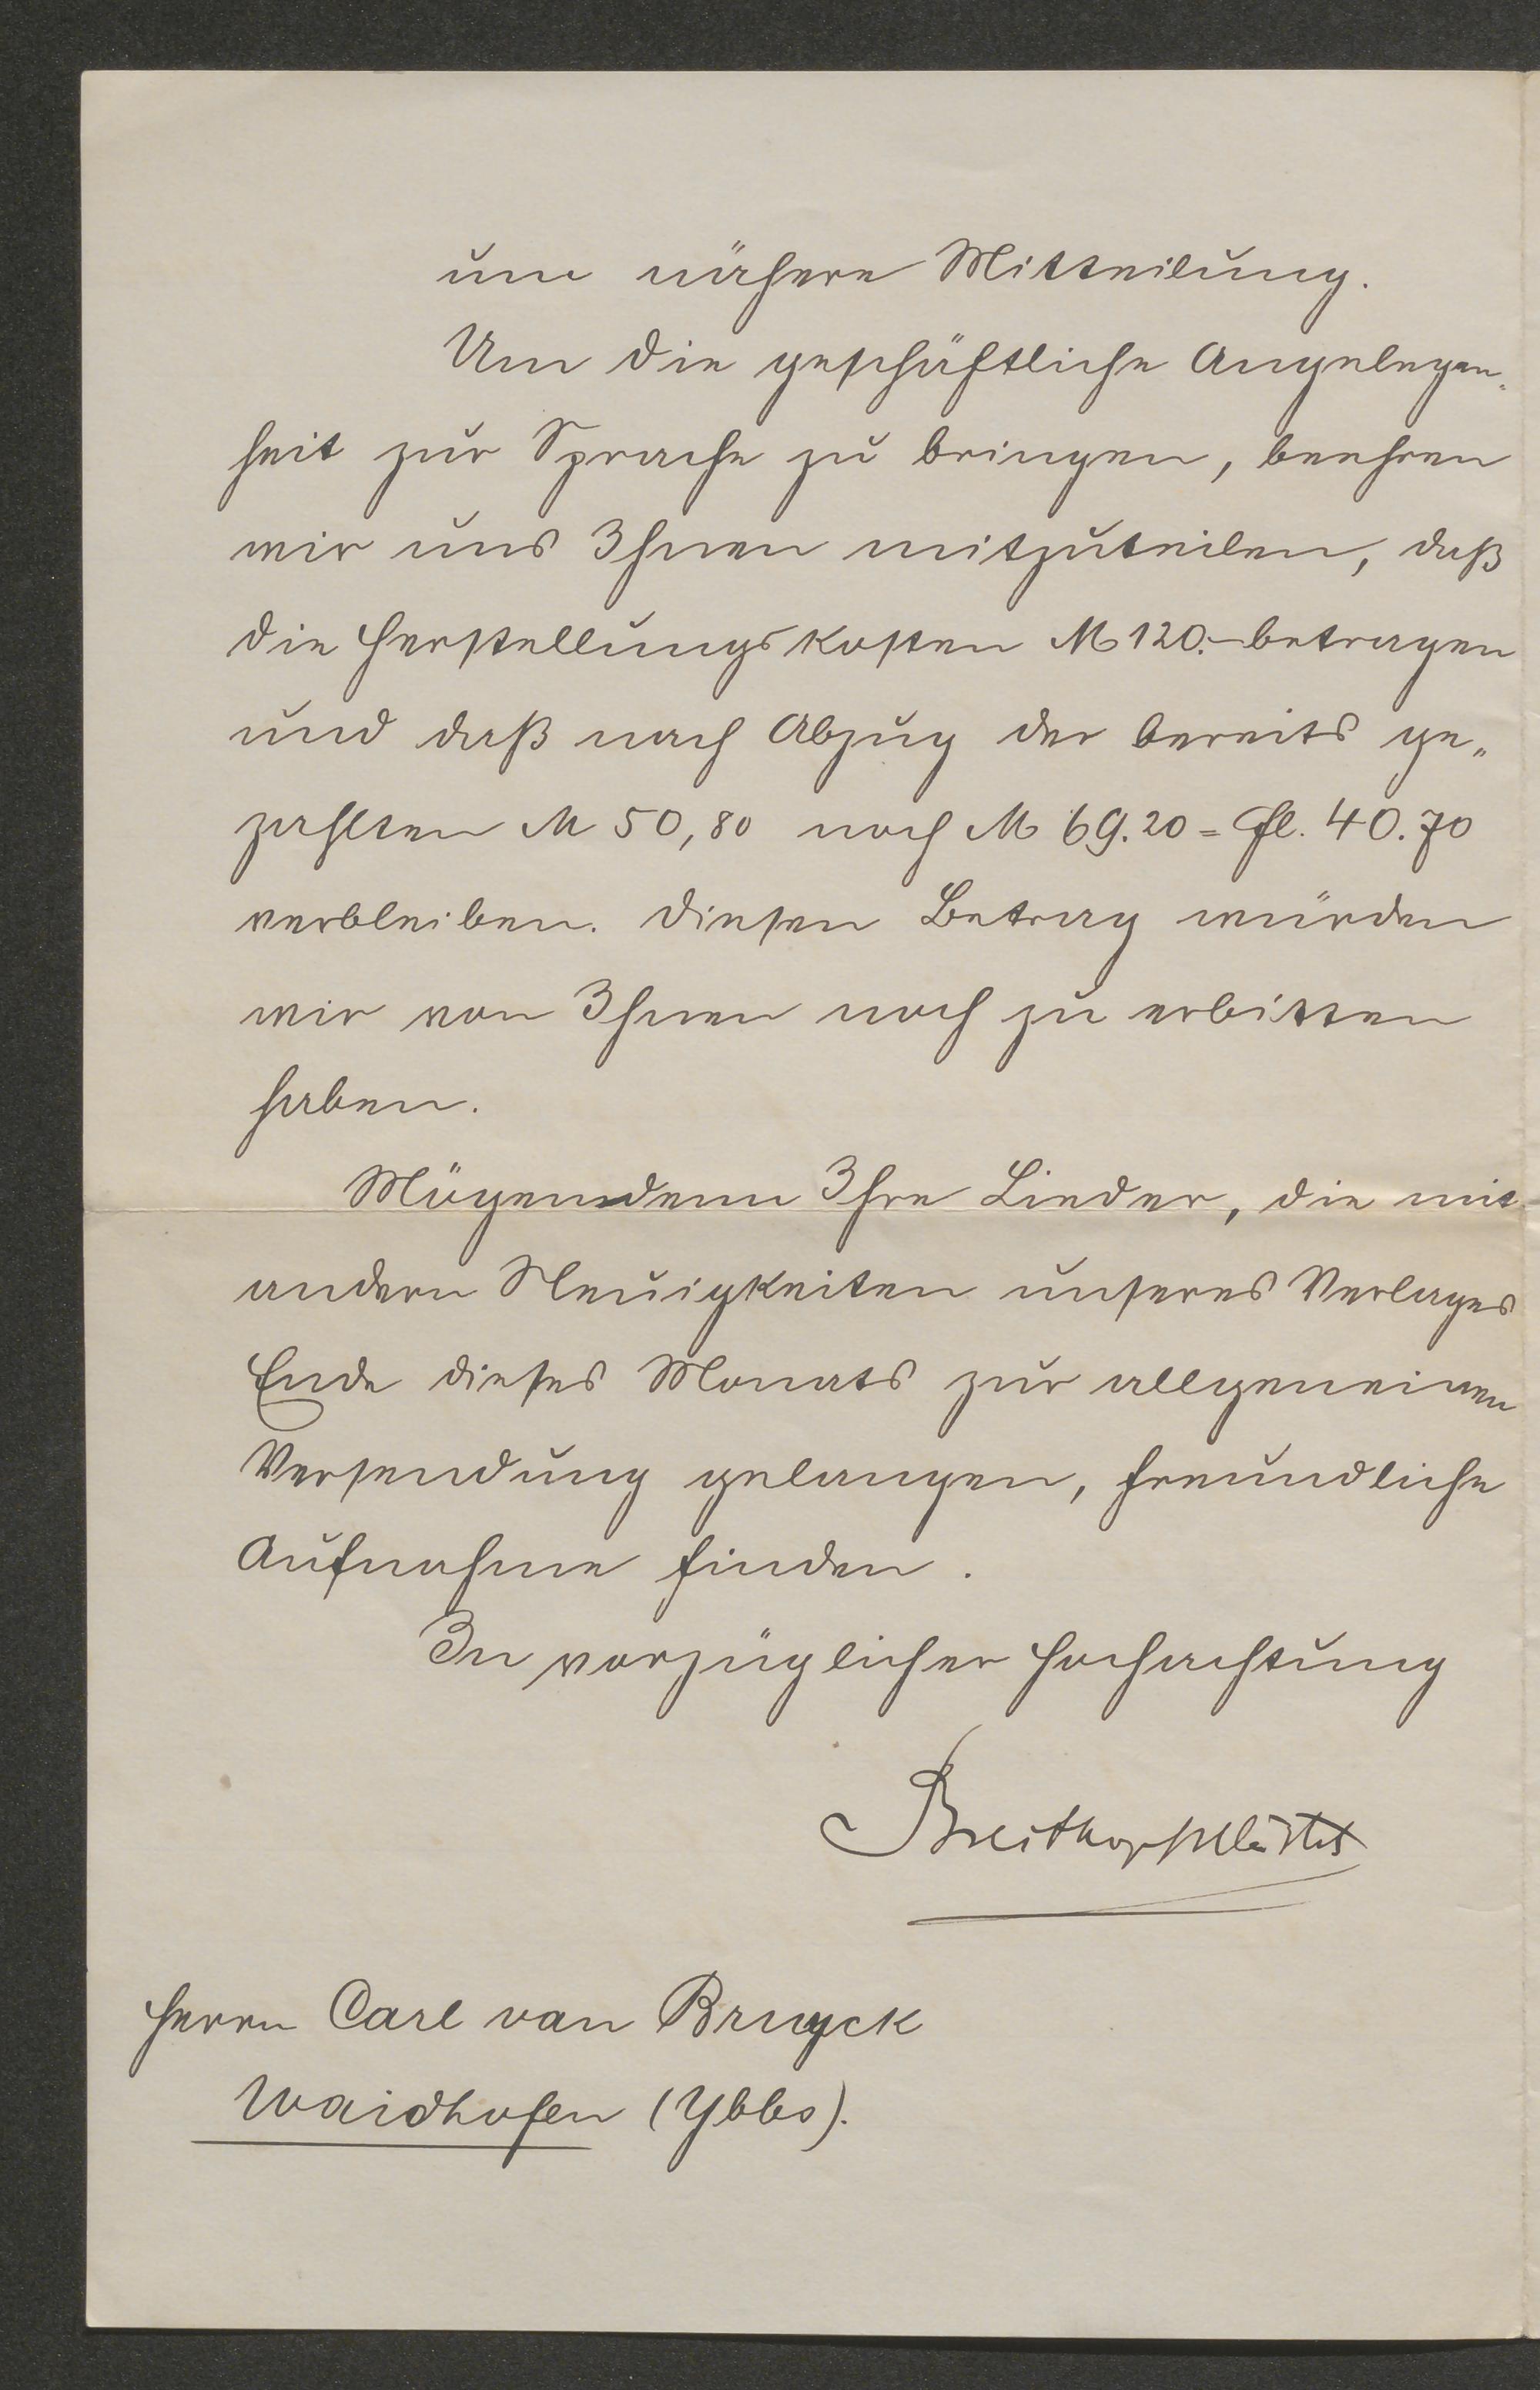 um nähere Mitteilung.
Um die geschäftliche Angelegen-
heit zur Sprache zu bringen, beehren
wir uns Ihnen mitzuteilen, daß
die Herstellungskosten M 120.- betragen
und daß nach Abzug der bereits ge-
zahlten M 50,80 noch M 69.20 = Fl. 40.70
verbleiben. Diesen Betrag würden
wir von Ihnen noch zu erbitten
haben.
Mögen denn Ihre Lieder, die mit
andern Neuigkeiten unseres Verlages
Ende dieses Monats zur allgemeinen
Versendung gelangen, freundliche
Aufnahme finden.
In vorzüglicher Hochachtung
Breitkopf & Härtel
Herrn Carl van Bruyck
Waidhofen (Ybbs).